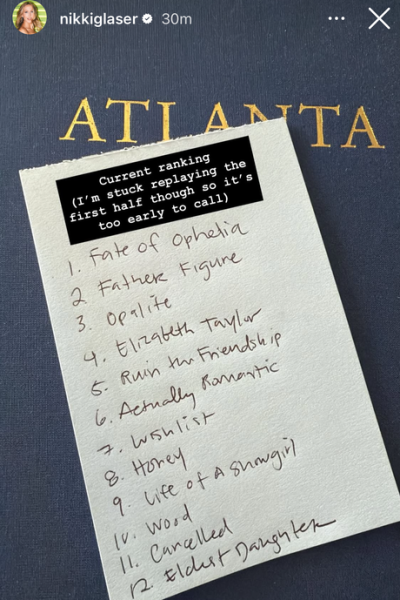 nikkiglaser 30m
ATLANTA
Current ranking
(I'm stuck replaying the
first half though so it's
too early to call)
1. Fate of Ophelia
2 Father Figure
3. Opalite
4. Elizabeth Taylor
5. Ruin the Friendship
6. Actually Romantic
7. Wishlist
8. Honey
9. Life of A Showgirl
10. Wood
11. Cancelled
12 Eldest Daughter